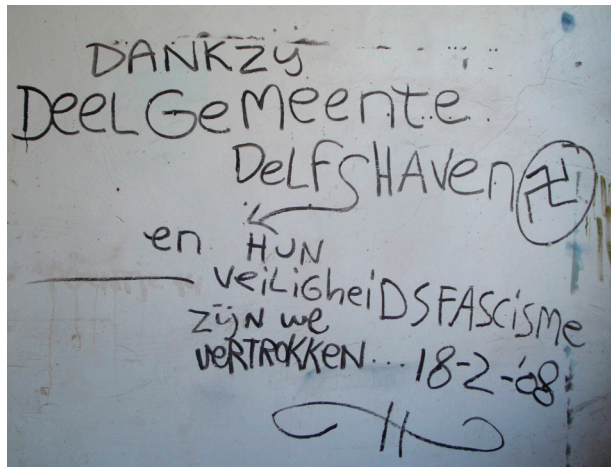 DANKZY
DeeLGeMeente
DeLFSHAVen
en HUN
veiLiGheiDSFAScisme
ZijN we
veRTROKKEN... 18-2-'08